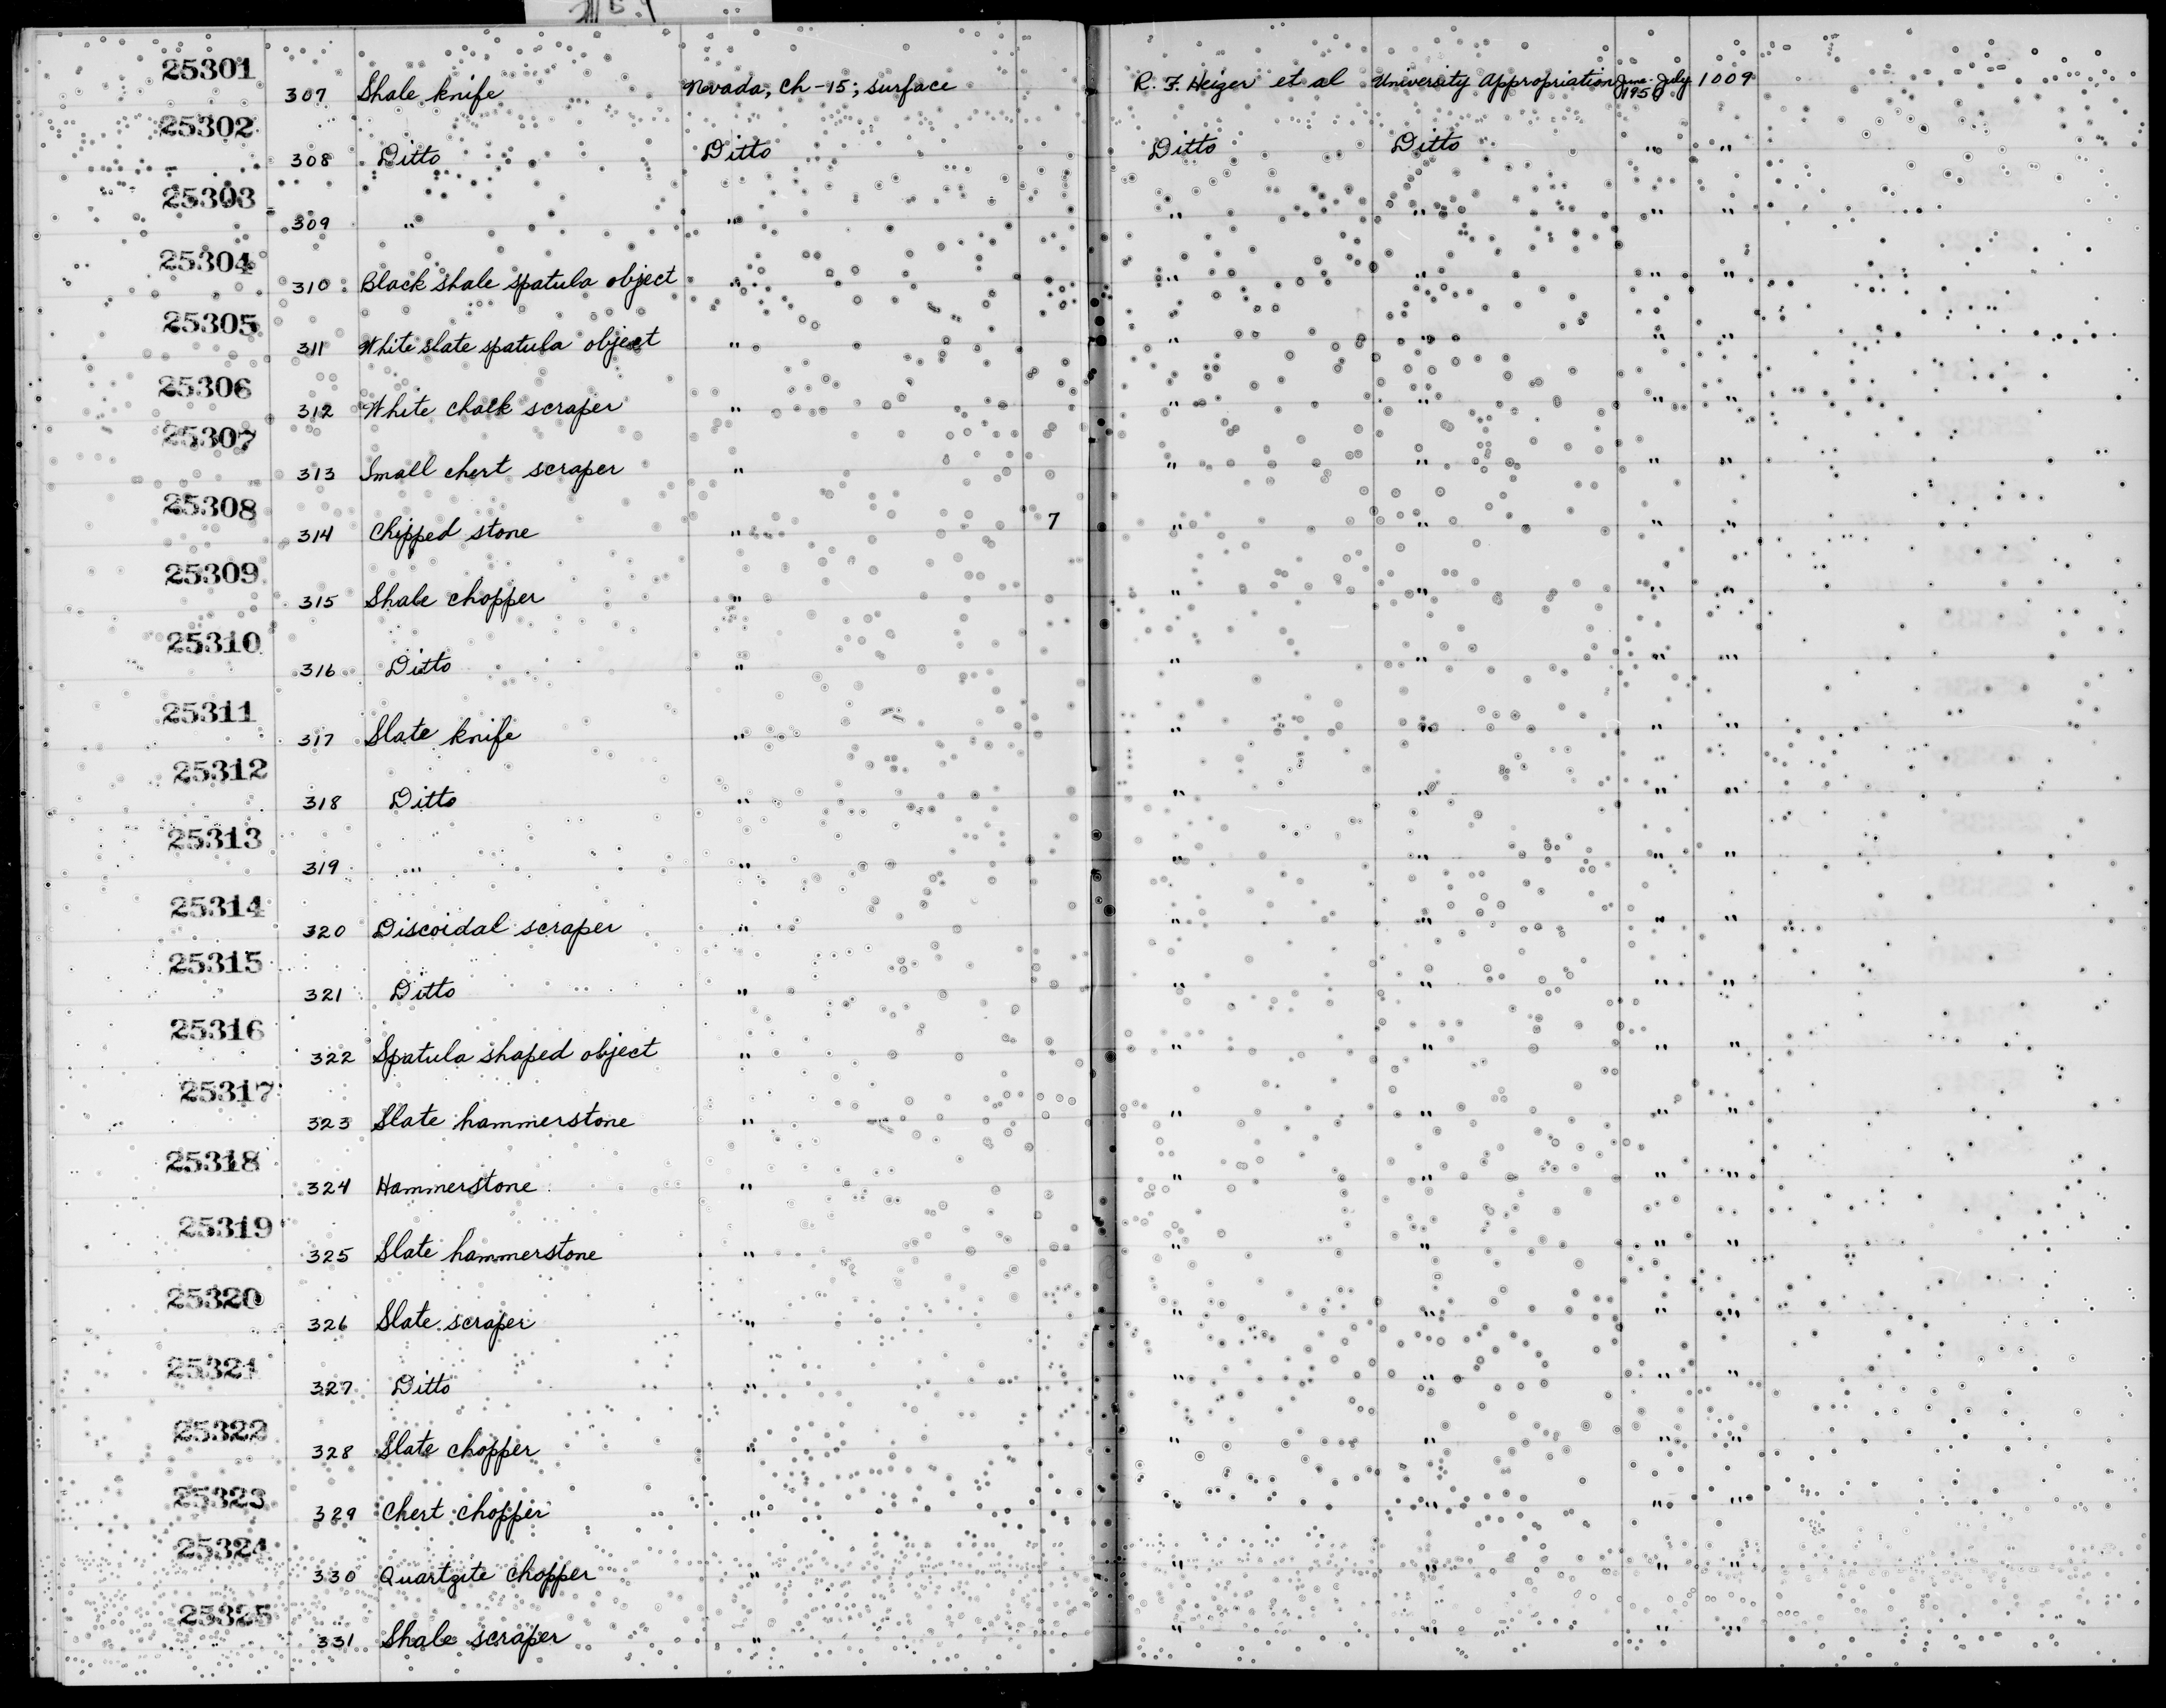 25301 307 Shale knife Nevada, Ch-15; surface R. F. Heizer et al University Appropriation June-July 1950 1009
25302 308 Ditto Ditto Ditto Ditto " "
25303 309 " " " " " "
25304 310 Black shale spatula object " " " " "
25305 311 White slate spatula object " " " " "
25306 312 White chalk scraper " " " " "
25307 313 Small chert scraper " " " " "
25308 314 Chipped stone " 7 " " " "
25309 315 Shale chopper " " " " "
25310 316 Ditto " " " " "
25311 317 Slate knife " " " " "
25312 318 Ditto " " " " "
25313 319 " " " " " "
25314 320 Discoidal scraper " " " " "
25315 321 Ditto " " " " "
25316 322 Spatula shaped object " " " " "
25317 323 Slate hammerstone " " " " "
25318 324 Hammerstone " " " " "
25319 325 Slate hammerstone " " " " "
25320 326 Slate scraper " " " " "
25321 327 Ditto " " " " "
25322 328 Slate chopper " " " " "
25323 329 Chert chopper " " " " "
25324 330 Quartzite chopper " " " " "
25325 331 Shale scraper " " " "